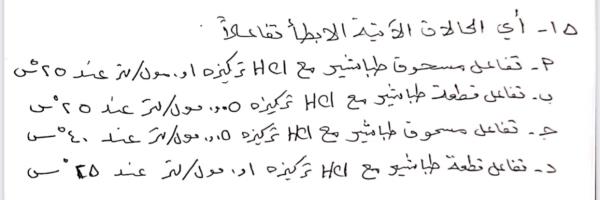 ١٥- أي الحالات الآتية الابطأ تفاعلاً
٢- تفاعل مسحوق طباشير مع HCl تركيزه ٠,١ مول/لتر عند ٢٥°س
ب- تفاعل قطعة طباشير مع HCl تركيزه ٠,٠٥ مول/لتر عند ٢٥°س
جـ- تفاعل مسحوق طباشير مع HCl تركيزه ٠,٠٥ مول/لتر عند ٤٠°س
د- تفاعل قطعة طباشير مع HCl تركيزه ٠,١ مول/لتر عند ٢٥°س